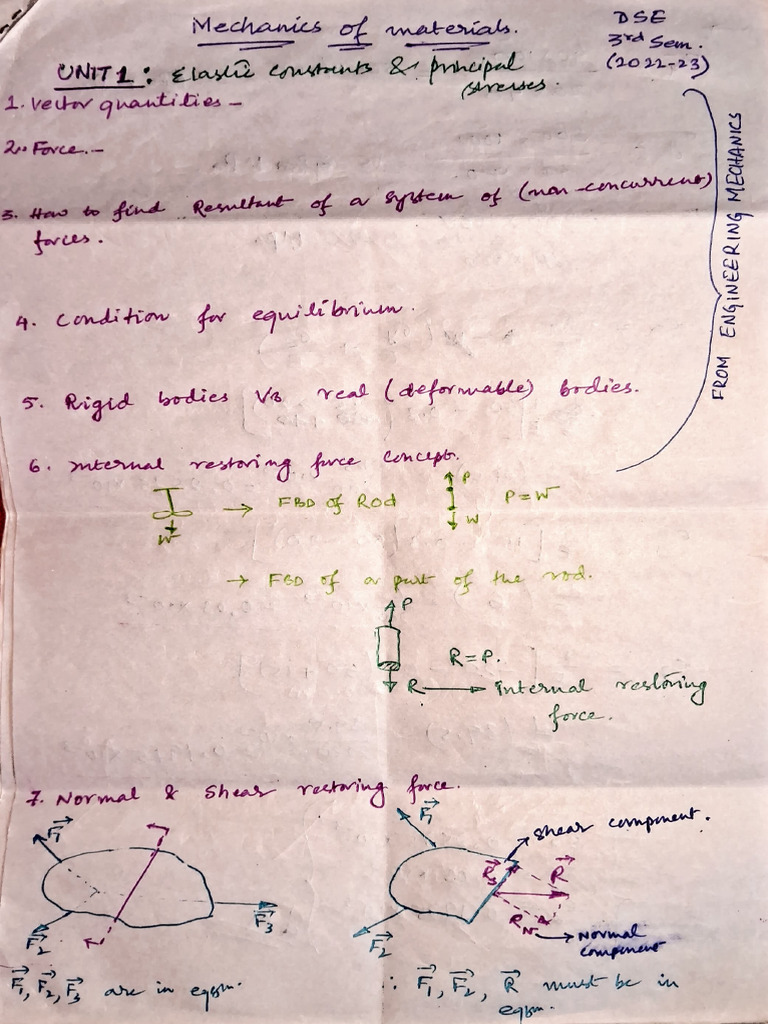 Mechanics of materials.
DSE
3rd Sem.
(2022-23)
UNIT 1 : Elastic constants & principal
stresses.
1. Vector quantities -
2. Force. -
3. How to find Resultant of a system of (non-concurrent)
forces.
4. Condition for equilibrium.
5. Rigid bodies Vs real (deformable) bodies.
6. Internal restoring force concept.
FROM ENGINEERING MECHANICS
W
→ FBD of Rod
P
W
P = W
→ FBD of a part of the rod.
P
R = P.
R → internal restoring
force.
7. Normal & Shear restoring force.
F₁
F₂
F₃
F₁
F₂
shear component.
Rs
R
RN
Normal
component
F₁, F₂, F₃ are in eqbm.
∴ F₁, F₂, R must be in
eqbm.